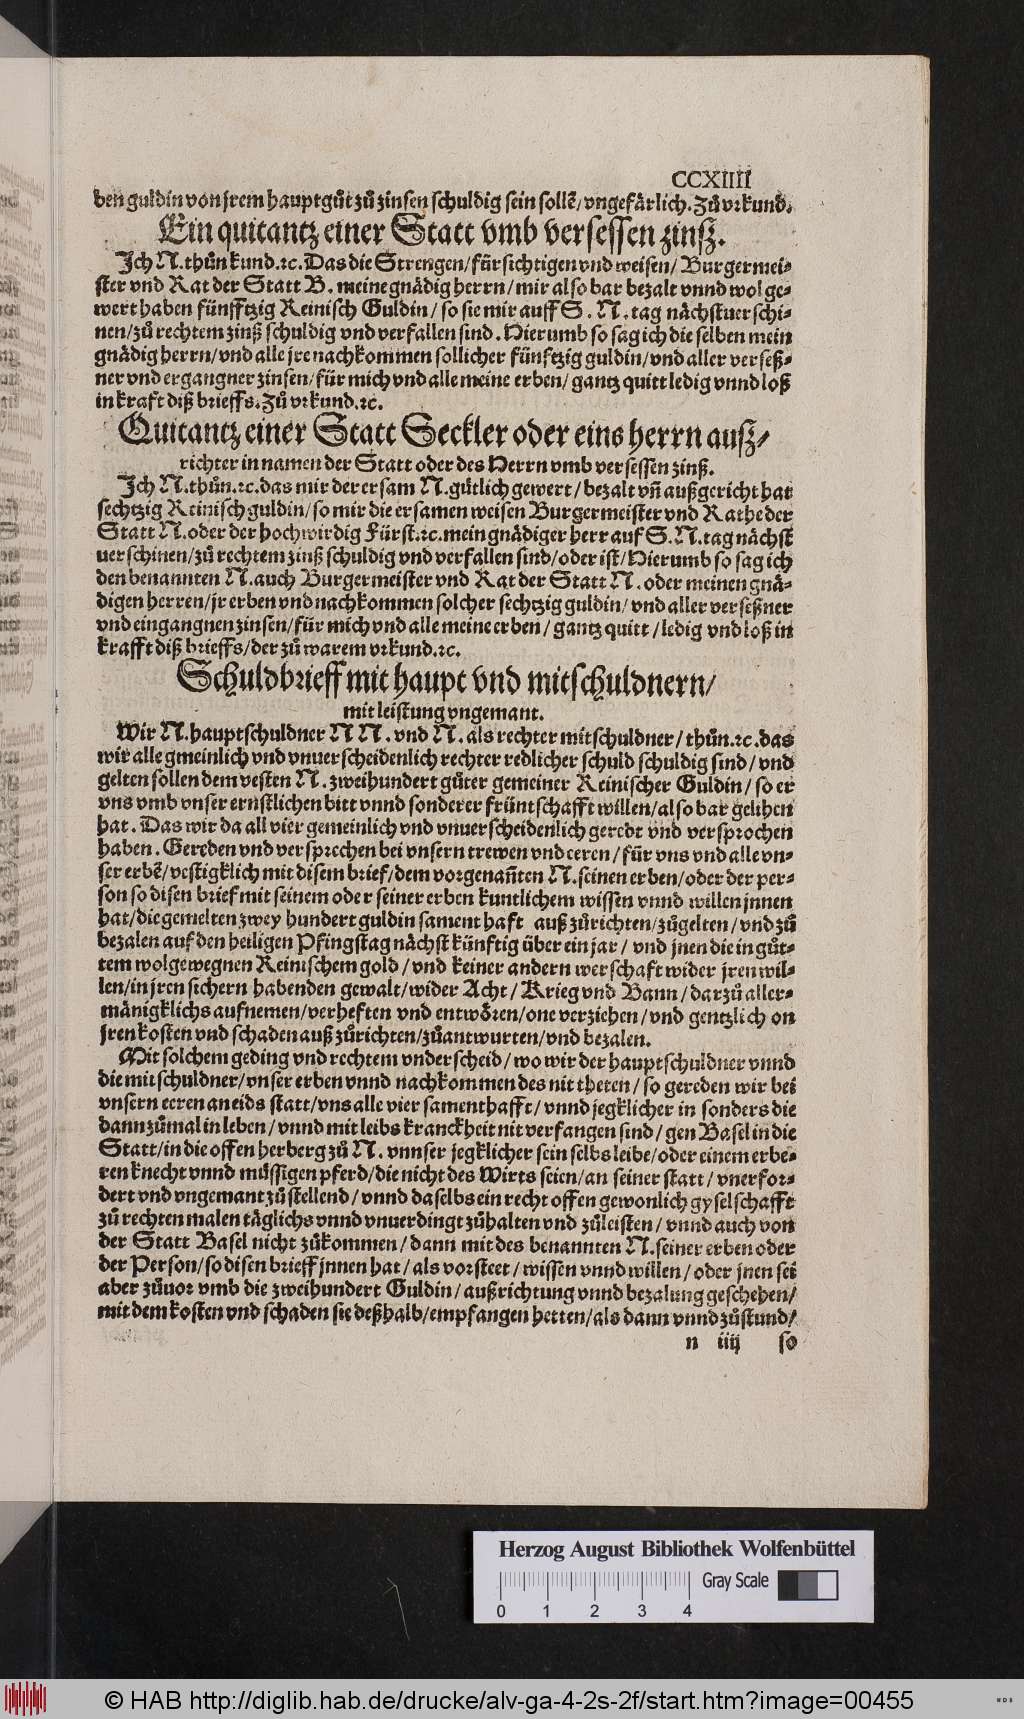 CCXIIII
ben guldin von jrem hauptgůt zů zinsen schuldig sein sollē/ vngefärlich. Zů vrkund.
Ein quitantz einer Statt vmb versessen zinsz.
Ich N. thůn kund. ⁊c. Das die Strengen/ fürsichtigen vnd weisen/ Burgermei-
ster vnd Rat der Statt B. meine gnädig herrn/ mir also bar bezalt vnnd wol ge-
wert haben fünfftzig Reinisch Guldin/ so sie mir auff S. N. tag nächstuerschi-
nen/ zů rechtem zinß schuldig vnd verfallen sind. Hierumb so sag ich die selben mein
gnädig herrn/ vnd alle jre nachkommen sollicher fünftzig guldin/ vnd aller verseß-
ner vnd ergangner zinsen/ für mich vnd alle meine erben/ gantz quitt ledig vnnd loß
in kraft diß brieffs. Zů vrkund. ⁊c.
Quitantz einer Statt Seckler oder eins herrn ausz/
richter in namen der Statt oder des Herrn vmb versessen zinß.
Ich N. thůn. ⁊c. das mir der ersam N. gůtlich gewert/ bezalt vñ außgericht hat
sechtzig Reinisch guldin/ so mir die ersamen weisen Burgermeister vnd Rathe der
Statt N. oder der hochwirdig Fürst. ⁊c. mein gnädiger herr auf S. N. tag nächst
uerschinen/ zů rechtem zinß schuldig vnd verfallen sind/ oder ist/ Hierumb so sag ich
den benannten N. auch Burgermeister vnd Rat der Statt N. oder meinen gnä-
digen herren/ jr erben vnd nachkommen solcher sechtzig guldin/ vnd aller verseßner
vnd eingangnen zinsen/ für mich vnd alle meine erben/ gantz quitt/ ledig vnd loß in
krafft diß brieffs/ der zů warem vrkund. ⁊c.
Schuldbrieff mit haupt vnd mitschuldnern/
mit leistung vngemant.
Wir N. hauptschuldner N N. vnd N. als rechter mitschuldner/ thůn. ⁊c. das
wir alle gmeinlich vnd vnuerscheidenlich rechter redlicher schuld schuldig sind/ vnd
gelten sollen dem vesten N. zweihundert gůter gemeiner Reinischer Guldin/ so er
vns vmb vnser ernstlichen bitt vnnd sonderer früntschafft willen/ also bar gelihen
hat. Das wir da all vier gemeinlich vnd vnuerscheidenlich geredt vnd versprochen
haben. Gereden vnd versprechen bei vnsern trewen vnd eeren/ für vns vnd alle vn-
ser erbē/ vestigklich mit disem brief/ dem vorgenañten N. seinen erben/ oder der per-
son so disen brief mit seinem oder seiner erben kuntlichem wissen vnnd willen jnnen
hat/ die gemelten zwey hundert guldin sament haft auß zůrichten/ zůgelten/ vnd zů
bezalen auf den heiligen Pfingstag nächst künftig über ein jar/ vnd jnen die in gůt-
tem wolgewegnen Reinischem gold/ vnd keiner andern werschaft wider jren wil-
len/ in jren sichern habenden gewalt/ wider Acht/ Krieg vnd Bann/ darzů aller-
mänigklichs aufnemen/ verheften vnd entwören/ one verziehen/ vnd gentzlich on
jren kosten vnd schaden auß zůrichten/ zůantwurten/ vnd bezalen.
Mit solchem geding vnd rechtem vnderscheid/ wo wir der hauptschuldner vnnd
die mitschuldner/ vnser erben vnnd nachkommen des nit theten/ so gereden wir bei
vnsern eeren an eids statt/ vns alle vier samenthafft/ vnnd jegklicher in sonders die
dannzůmal in leben/ vnnd mit leibs kranckheit nit verfangen sind/ gen Basel in die
Statt/ in die offen herberg zů N. vnnser jegklicher sein selbs leibe/ oder einem erbe-
ren knecht vnnd müssigen pferd/ die nicht des Wirts seien/ an seiner statt/ vnerfor-
dert vnd vngemant zů stellend/ vnnd daselbs ein recht offen gewonlich gyselschafft
zů rechten malen täglichs vnnd vnuerdingt zůhalten vnd zůleisten/ vnnd auch von
der Statt Basel nicht zůkommen/ dann mit des benannten N. seiner erben oder
der Person/ so disen brieff jnnen hat/ als vorsteet/ wissen vnnd willen/ oder jnen sei
aber zůuor vmb die zweihundert Guldin/ außrichtung vnnd bezalung geschehen/
mit dem kosten vnd schaden sie deßhalb/ empfangen hetten/ als dann vnnd zůstund/
n iiij so
Herzog August Bibliothek Wolfenbüttel
Gray Scale
0 1 2 3 4
© HAB http://diglib.hab.de/drucke/alv-ga-4-2s-2f/start.htm?image=00455